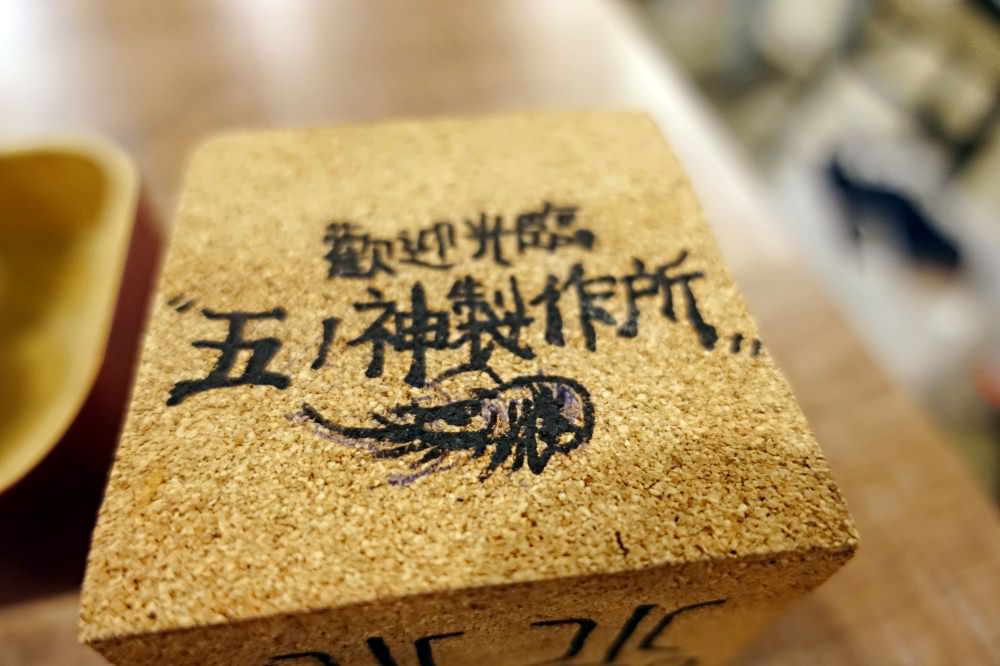 歡迎光臨
"五ノ神製作所"